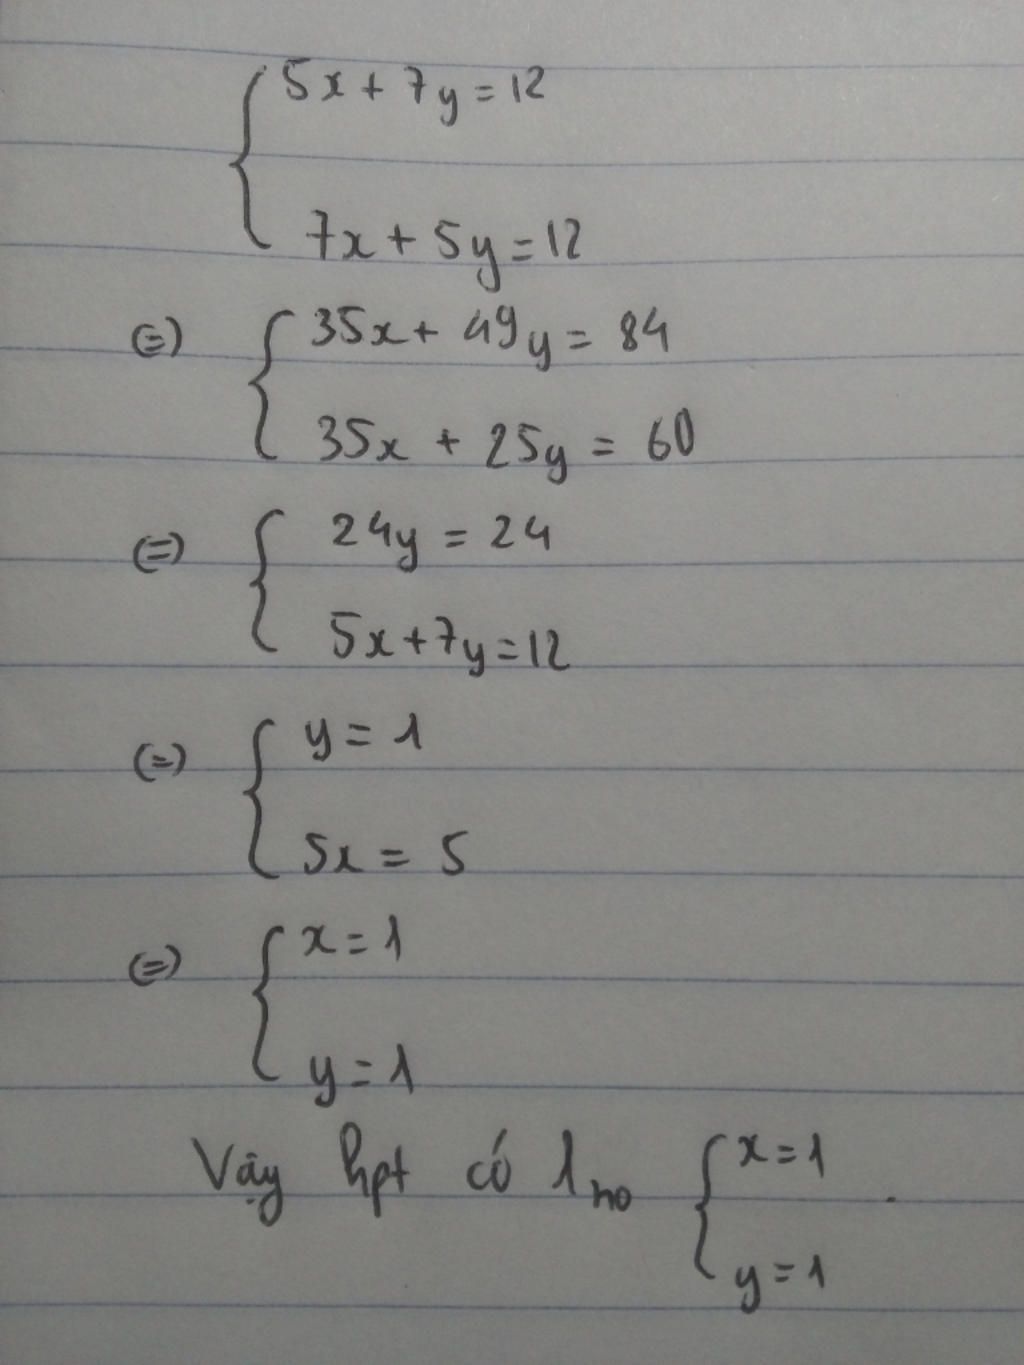 5x + 7y = 12
7x + 5y = 12
(=) 35x + 49y = 84
35x + 25y = 60
(=) 24y = 24
5x + 7y = 12
(=) y = 1
5x = 5
(=) x = 1
y = 1
Vậy hpt có 1 no { x = 1
y = 1 .